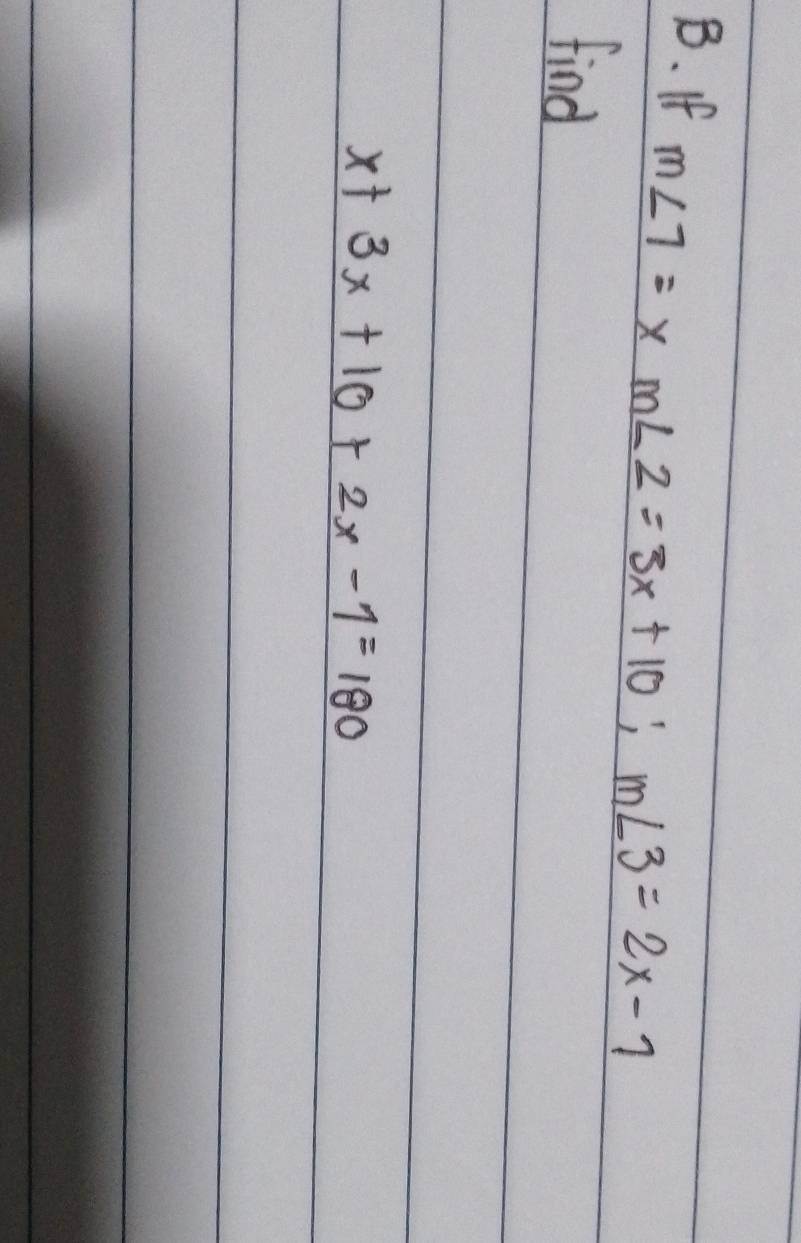 B. If m∠1 = x m∠2 = 3x + 10; m∠3 = 2x - 1
find
x + 3x + 10 + 2x - 1 = 180